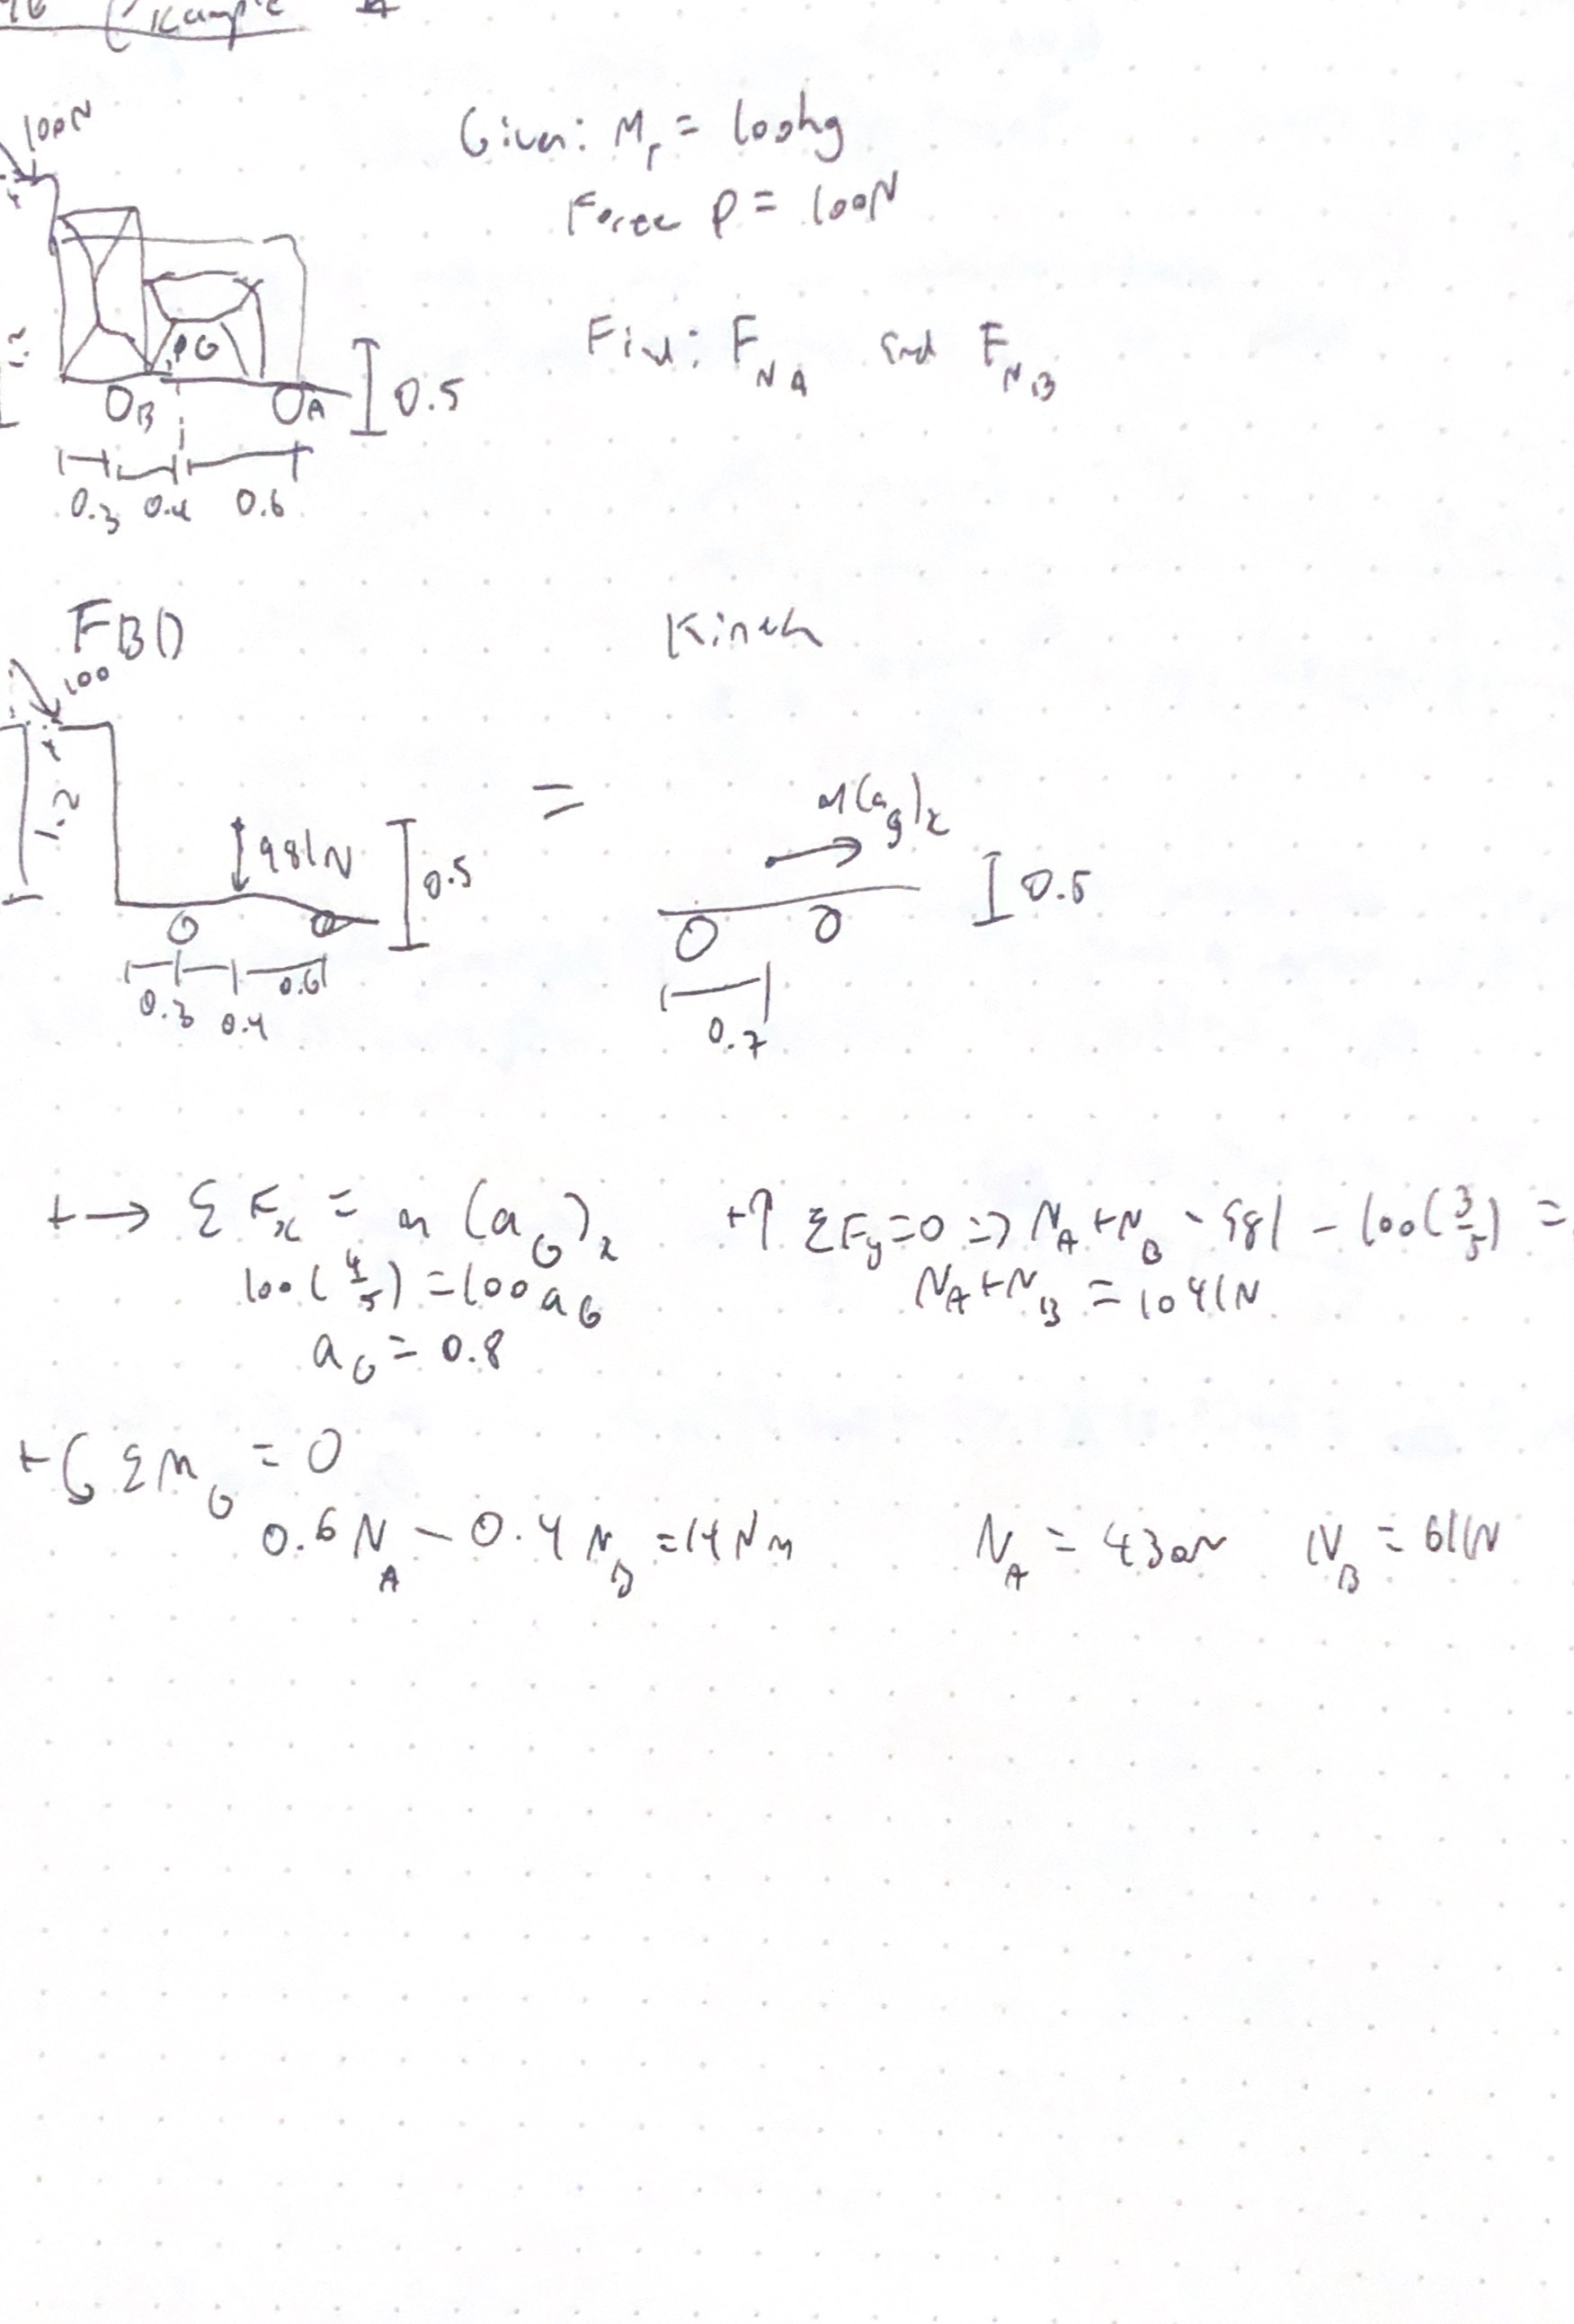 Example 4
100N
Given: Mr = 100kg
Force P = 100N
Find: F_NA and F_NB
1.2
G
B A
0.5
0.3 0.4 0.6
FBD
100
4
1.2
981N
0.5
0.3 0.4 0.6
Kineh
=
m(a_g)_x
0.5
0.7
+→ ΣF_x = m(a_G)_x
100(4/5) = 100a_G
a_G = 0.8
+↑ ΣF_y=0 => N_A+N_B - 981 - 100(3/5) =
N_A+N_B = 1041N
+↺ ΣM_G = 0
0.6N_A - 0.4N_B = 14Nm
N_A = 430N N_B = 611N